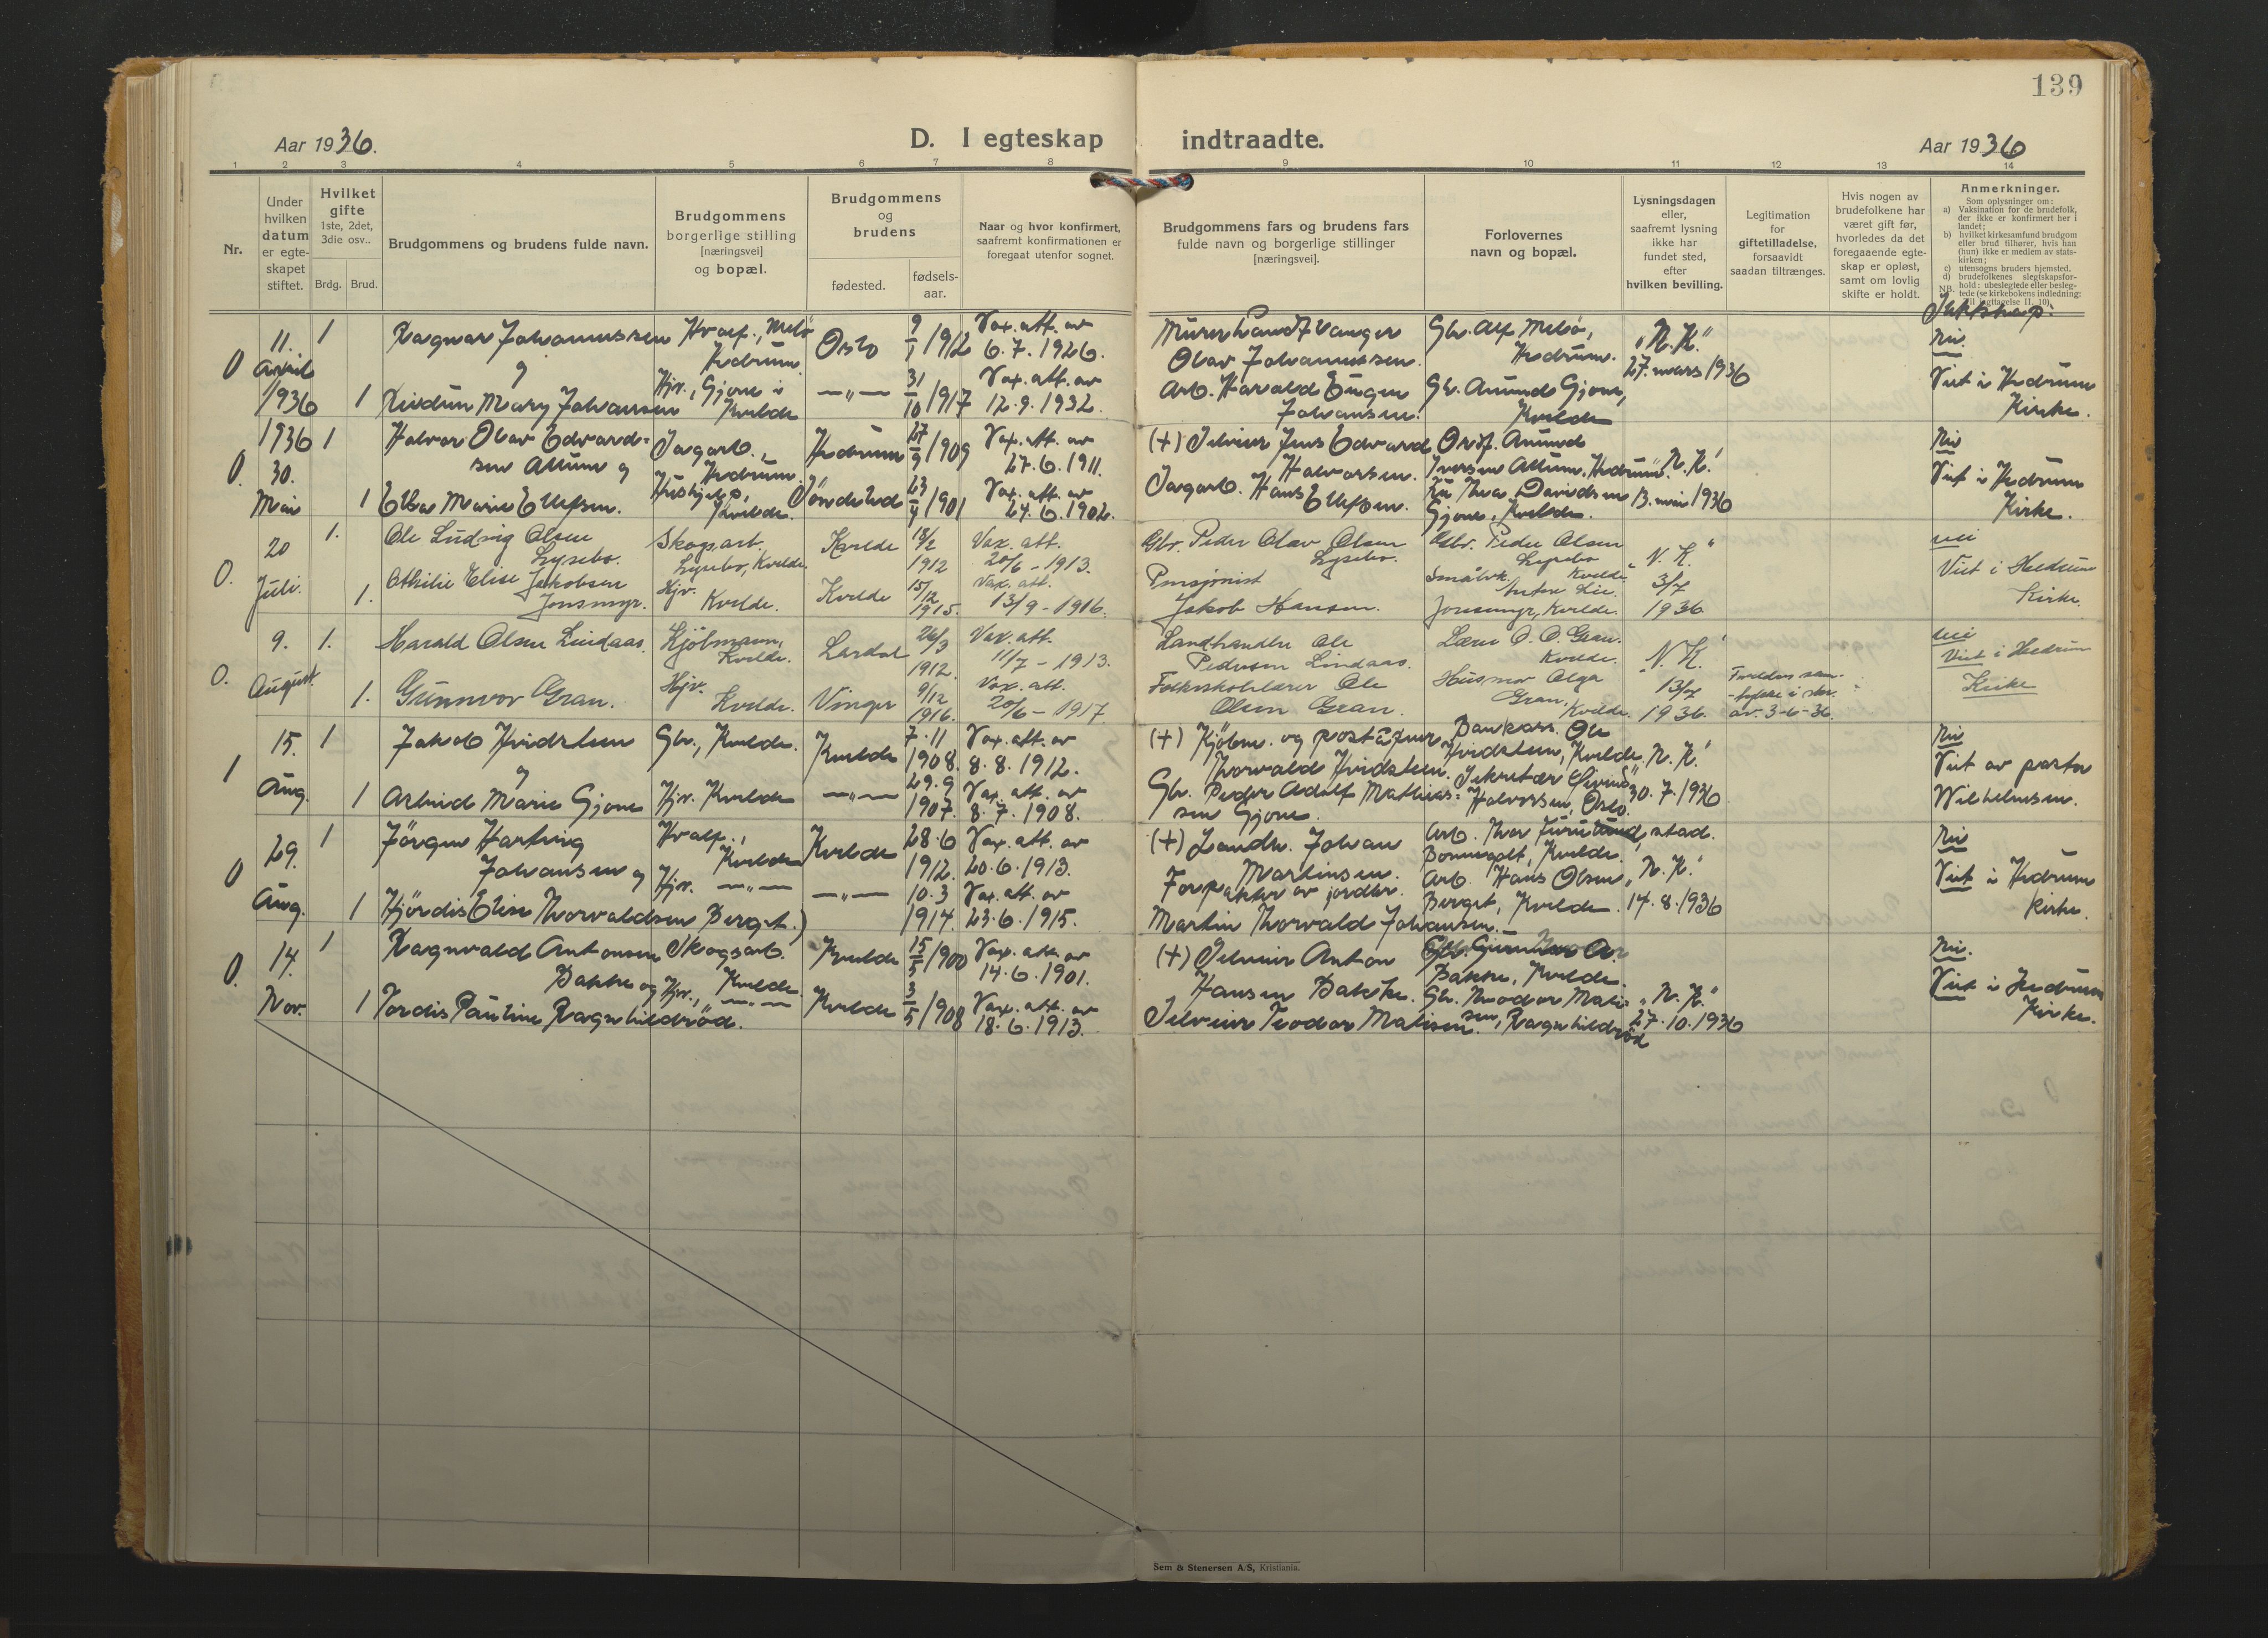 139
Aar 1936.
D. I egteskap indtraadte.
Aar 1936
1 2 3 4 5 6 7 8 9 10 11 12 13 14
Nr.
Under hvilken datum er egte- skapet stiftet.
Hvilket gifte 1ste, 2det, 3die osv..
Brdg. Brud.
Brudgommens og brudens fulde navn.
Brudgommens borgerlige stilling [næringsvei] og bopæl.
Brudgommens og brudens
fødested.
fødsels- aar.
Naar og hvor konfirmert, saafremt konfirmationen er foregaat utenfor sognet.
Brudgommens fars og brudens fars fulde navn og borgerlige stillinger [næringsvei].
Forlovernes navn og bopæl.
Lysningsdagen eller, saafremt lysning ikke har fundet sted, efter hvilken bevilling.
Legitimation for giftetilladelse, forsaavidt saadan tiltrænges.
Hvis nogen av brudefolkene har været gift før, hvorledes da det foregaaende egte- skap er opløst, samt om lovlig skifte er holdt.
Anmerkninger.
Som oplysninger om:
a) Vaksination for de brudefolk, der ikke er konfirmert her i landet;
b) hvilket kirkesamfund brudgom eller brud tilhører, hvis han (hun) ikke er medlem av stats- kirken;
c) utensogns bruders hjemsted.
d) brudefolkenes slegtskapsfor- hold: ubeslegtede eller besleg- tede (se kirkebokens indledning:
0
11. april 1936
1
Ragnar Johannessen
og
Hvalf., Melø
Hedrum
Oslo
9/1 1912
Vax. att. av
6.7.1926.
Olav Johannessen.
Gbr. Alf Melø,
Hedrum.
"N.K."
27. mars 1936
Nei.
1
Mary Johansen
Hjv., Gjone i
Kvelde
—„—
31/10 1917
Vax. att. av
12.9.1932.
Arb. Harald Eugen
Johansen.
Gb. Amund Gjone,
Kvelde
Viet i Hedrum
Kirke.
0.
1936
30.
Mai
1
Halvor Olav Edvard=
sen Allum og
Sagarb.,
Hedrum.
Hedrum
27/9 1909
Vax. att. av
27.6.1911.
(+) Selveier Jens Edvard
Halvorsen.
Amund
Iversen Allum, Hedrum
"N.K."
13. mai 1936
Nei
1
Elsa Marie Ellefsen.
Hushjelp,
Kvelde.
23/4 1901
Vax. att. av
24.6.1902.
Sagarb. Hans
Ellefsen.
Thea Davidsen
Gjone, Kvelde.
Viet i Hedrum
Kirke.
0.
20
Juli.
1.
Ole Ludvig Olsen
Lysebo.
Skogsarb.
Lysebo, Kvelde.
Kvelde
18/2
1912
Vax. att.
20/6 - 1913.
Gbr. Peder Olav Olsen
Lysebo.
Gbr. Peder Olsen
Lysebo
Kvelde
"N.K."
3/7
1936
nei
1.
Othilie Elise Jakobsen
Jonsmyr.
Hjv.
Kvelde.
Kvelde
15/12
1915.
Vax. att.
13/9 - 1916.
Pensjonist
Jakob Hansen.
Småbrk. Anton Lie.
Jonsmyr, Kvelde.
Viet i Hedrum
Kirke.
0.
9.
August.
1.
Harald Olsen Lindaas.
Kjøbmann,
Kvelde.
Lardal
26/3
1912.
Vax. att.
11/7 - 1913.
Landhandler Ole
Pedersen Lindaas.
Lærer O. O. Gran.
Kvelde.
"N.K."
13/7
1936.
nei
1.
Gunnvor Gran.
Hjv.
Kvelde.
Vinger
9/12
1916.
Vax. att.
20/6 - 1917
Folkeskolelærer Ole
Olsen Gran.
Husmor Olga
Gran, Kvelde.
Foreldres sam-
-tykke i skr.
av. 3-6-36.
Viet i Hedrum
Kirke
1
15.
Aug.
1
Jakob Hvidsteen
og
Gbr., Kvelde.
Kvelde
7.11
1908.
Vax. att. av
8.8.1912.
(+) Kjøbm. og poståpner
Thorvald Hvidsteen.
Bankkass. Ole
Hvidsteen, Kvelde,
"N.K."
30.7.1936
Nei
1
Marie Gjone
Hjv. Kvelde
—„—
29.9
1907.
Vax. att. av
8.7.1908.
Gbr. Peder Adolf Mathias=
sen Gjone.
Sekretær Eivind
Halvorsen, Oslo
Viet av pastor
Wilhelmsen.
0
29.
Aug.
1
Jørgen Hartvig
Johansen og
Hvalf.,
Kvelde
Kvelde
28.6
1912.
Vax. att. av
20.6.1913.
(+) Landhr. Johan
Martinsen.
Arb. Thor Furulund, stad.
Kvelde.
"N.K."
14.8.1936
Nei
1
Hjørdis Elise Thorvaldsen Berget.)
Hjv. —„—
—„—
10.3
1914.
Vax. att. av
23.6.1915.
Forpakter av jordbr.
Martin Thorvald Johansen.
Arb. Hans Olsen
Berget, Kvelde.
Viet i Hedrum
Kirke.
0.
14.
Nov.
1
Ragnvald Antonsen
Bakke og
Skogsarb.
Kvelde.
Kvelde
15/5 1900
Vax. att. av
14.6.1901.
(+) Selveier Anton
Hansen Bakke.
Bakke, Kvelde.
"N.K."
27.10.1936
Nei.
1
Tordis Pauline Ragnhildrød.
Hjv., —„—
Kvelde
3/5 1908
Vax. att. av
18.6.1913.
Selveier Teodor Matisen.
Gbr. Theodor Mati=
sen, Ragnhildrød
Viet i Hedrum
Kirke.
Sem & Stenersen A/S, Kristiania.